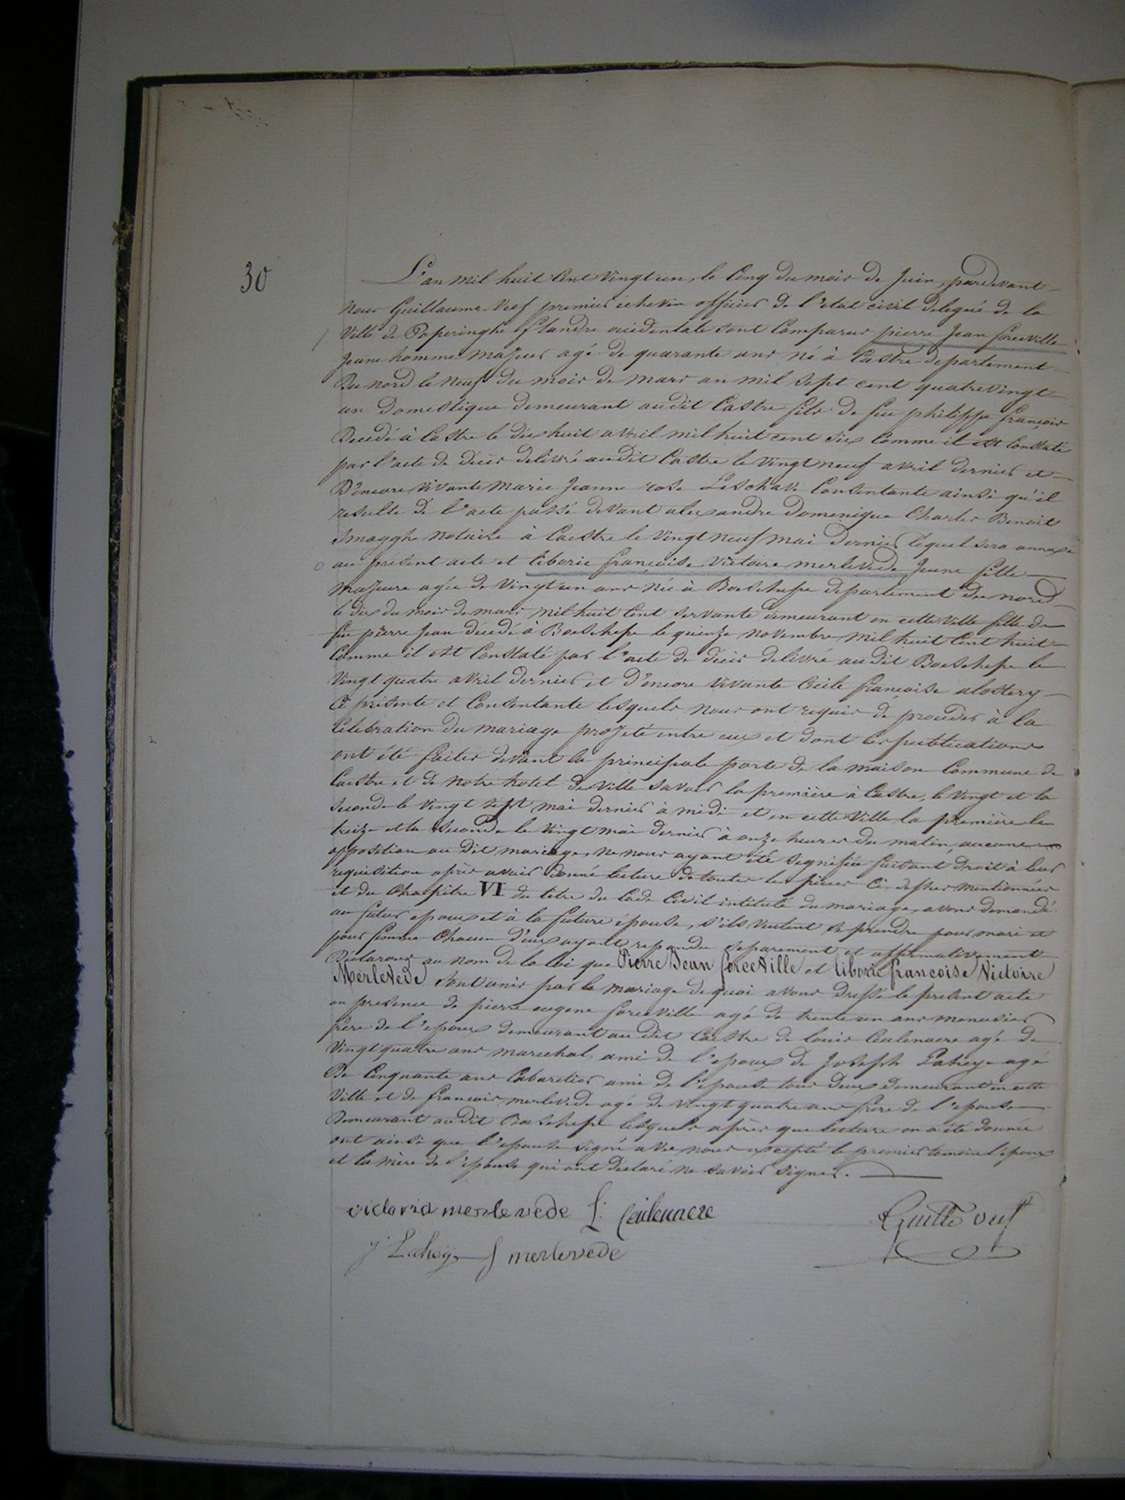 30
L'an mil huit Cent Vingt un, le Cinq du mois de Juin, pardevant
Nous Guillaume Oeuf premier échevin officier de l'état civil delegué de la
Ville de Poperinghe flandre occidentale sont Comparus pierre Jean forceville
Jeune homme majeur agé de quarante ans né à Castre departement
Du nord le neuf du mois de mars an mil sept cent quatre vingt
un domestique demeurant audit Castre fils de feu philippe françois
Decedé à Castre le dix huit avril mil huit cent six Comme il est Constaté
par l'acte de décès delivré audit Castre le vingt neuf avril dernier et
D'encore vivante Marie Jeanne rose Consentante ainsi qu'il
resulte de l'acte passé devant alexandre domenique Charles Benoit
Smagghe notaire à Caestre le vingt neuf mai dernier lequel sera annexé
au present acte et liborie françoise victoire merlevede Jeune fille
majeure agée de Vingt un ans née à Boeschepe departement du nord
le dix du mois de mars mil huit Cent servante demeurant en cette Ville fille de
feu pierre Jean décédé à Boeschepe le quinze novembre mil huit Cent huit
Comme il est Constaté par l'acte de décès delivré audit Boeschepe le
Vingt quatre avril dernier et d'encore vivante Cécile françoise
Ci présente et Consentante lesquels nous ont requis de proceder à la
Celebration du mariage projeté entre eux et dont les publications
ont été faites devant la principale porte de la maison Commune de
Caestre et de notre hotel de Ville savoir la première à Castre, le vingt et la
seconde le vingt sept mai dernier à midi et en cette Ville la première le
treize et la seconde le vingt mai dernier à onze heures du matin, aucune
opposition au dit mariage, ne nous ayant été signifiée faisant droit à leur
requisition après avoir donné lecture de toutes les pièces Ci-dessus mentionnées
et du Chapitre VI du titre du Code Civil intitulé du mariage, avons demandé
au futur epoux et à la future épouse, s'ils veulent se prendre pour mari et
pour femme Chacun d'eux ayant repondu separement et affirmativement
Declarons au nom de la loi que Pierre Jean forceville et liborie françoise Victoire
Merlevede sont unis par le mariage de quoi avons dressé le present acte
en presence de pierre eugene forceville agé de trente un ans
frère de l'epoux demeurant au dit Caestre de louis Ceulenaere agé de
Vingtquatre ans marechal ami de l'epoux de Joseph Lahoye agé
De Cinquante ans Cabaretier ami de l'épouse tous deux demeurant en cette
Ville et de françois merlevede agé de vingt quatre ans frère de l'epouse
Demeurant audit Boeschepe lesquels après que lecture en a été donnée
ont ainsi que l'epouse signé avec nous excepté le premier temoin l'epoux
et la mère de l'épouse qui ont declaré ne savoir signer.
victoria merlevede L. Ceulenaere Guille oeuf
J. Lahoye f merlevede